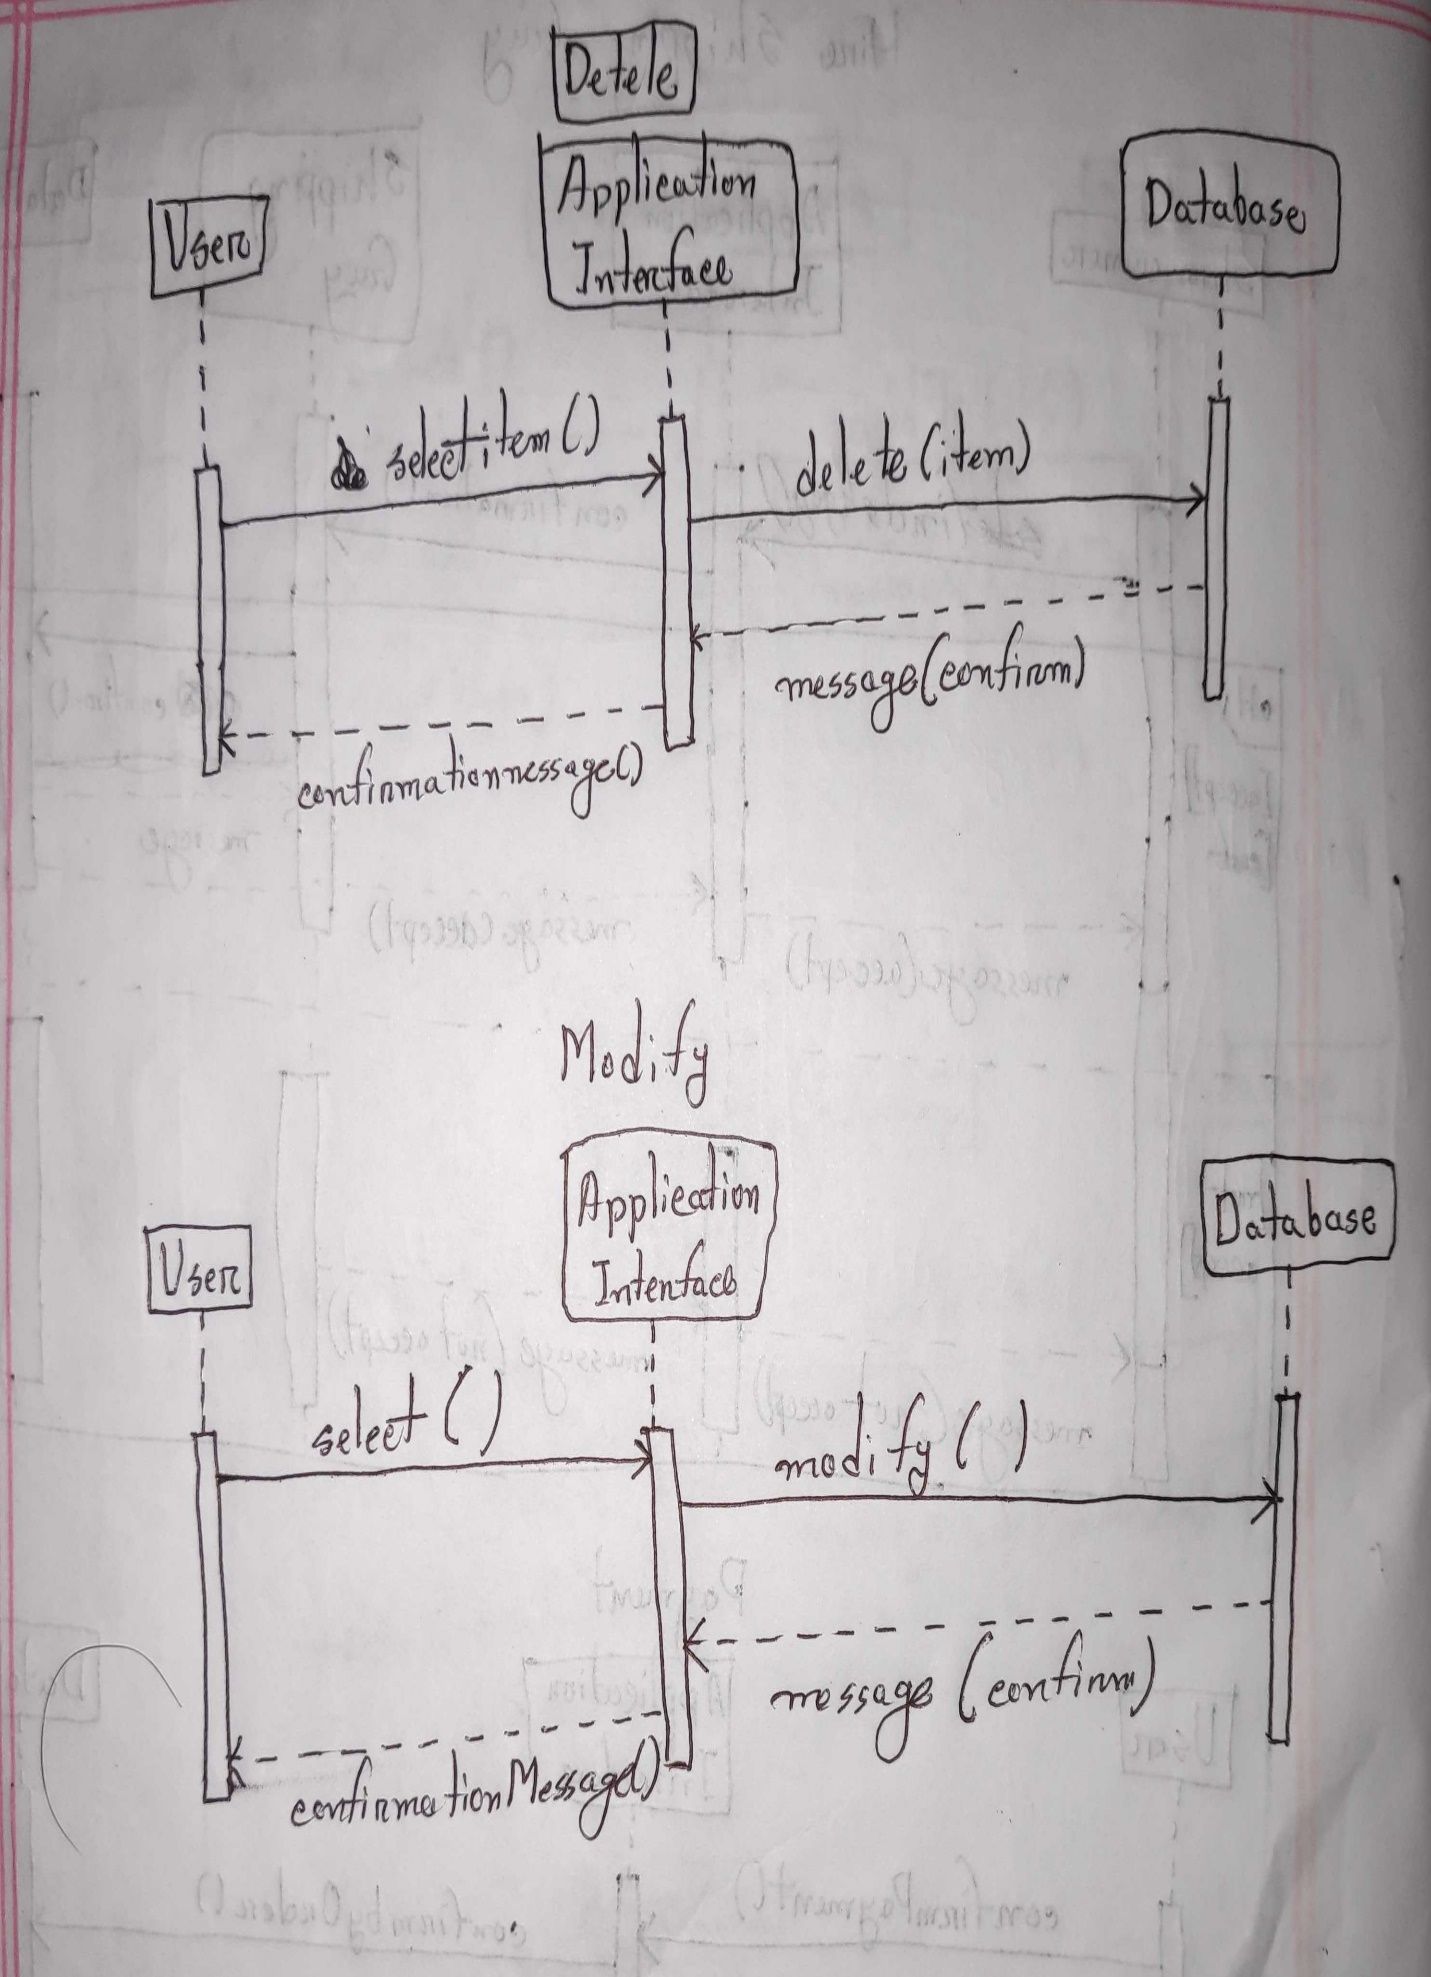 Detele
Application
Interface
User
Database
selectitem()
delete(item)
message(confirm)
confirmationmessage()
Modify
Application
Interface
User
Database
select()
modify()
message (confirm)
confirmationMessage()